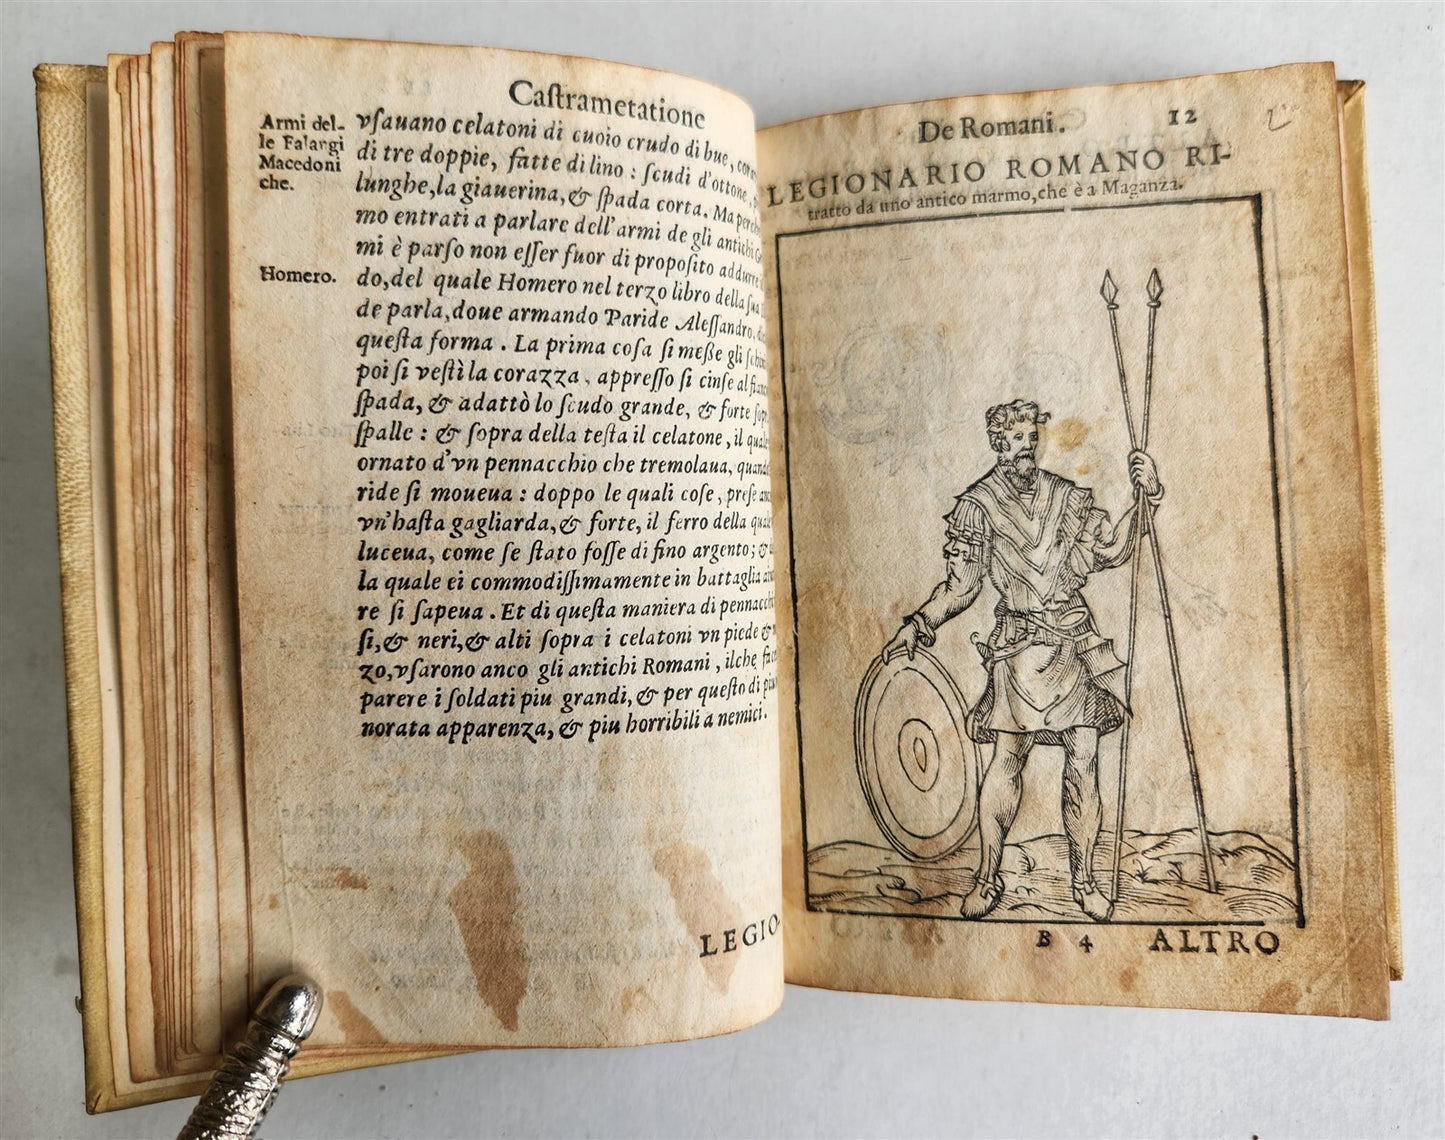 Caſtrametatione
Armi del-
le Falangi
Macedoni
che.
vſauano celatoni di cuoio crudo di bue,
di tre doppie, fatte di lino : ſcudi d'ottone,
lunghe, la giauerina, & ſpada corta. Ma perche
mo entrati a parlare dell'armi de gli antichi
mi è parſo non eſſer fuor di propoſito addurre
Homero.
do, del quale Homero nel terzo libro della ſua
de parla, doue armando Paride Aleſſandro,
queſta forma . La prima coſa ſi meße gli
poi ſi veſtì la corazza , appreſſo ſi cinſe al
ſpada, & adattò lo ſcudo grande, & forte
ſpalle : & ſopra della teſta il celatone, il
ornato d'vn pennacchio che tremolaua,
ride ſi moueua : doppo le quali coſe, preſe
vn'haſta gagliarda, & forte, il ferro della
luceua, come ſe ſtato foſſe di fino argento; &
la quale ei commodiſſimamente in battaglia
re ſi ſapeua . Et di queſta maniera di
ſi, & neri, & alti ſopra i celatoni vn piede &
zo, vſarono anco gli antichi Romani , ilche
parere i ſoldati piu grandi, & per queſto di
norata apparenza, & piu horribili a nemici.
LEGIO
De Romani .
12
LEGIONARIO ROMANO RI-
tratto da uno antico marmo, che è a Maganza.
B 4
ALTRO